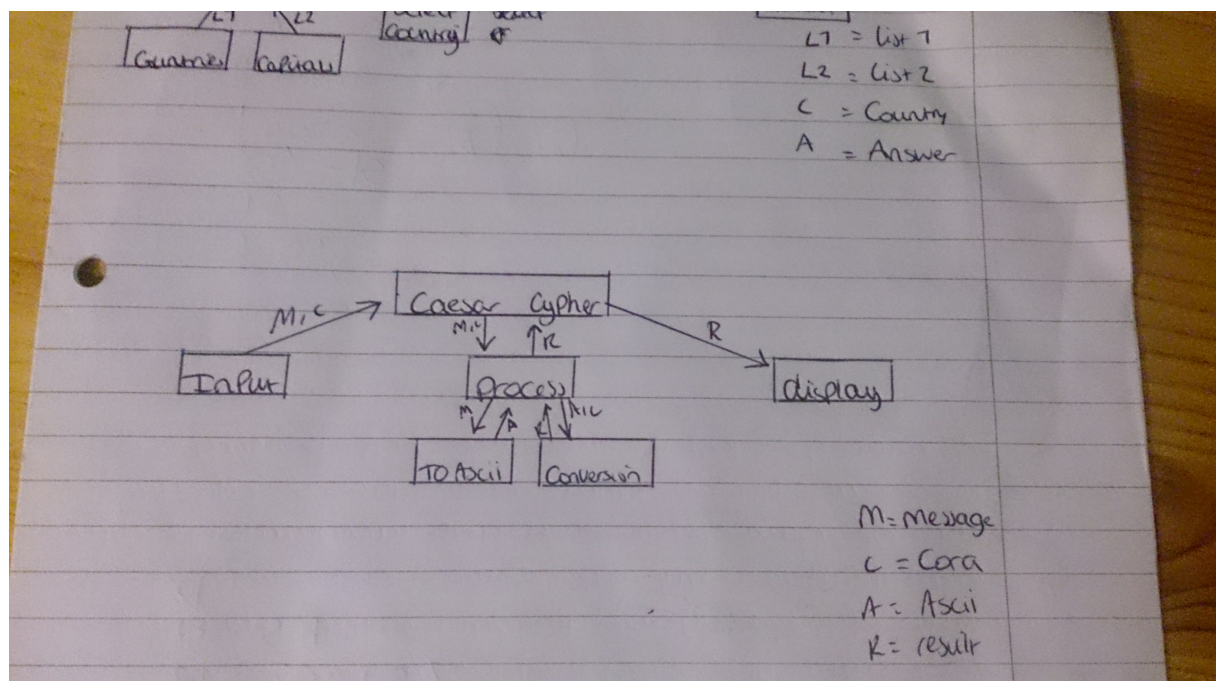 L1 L2
Country
L1 = List 1
Countries Capitals
L2 = List 2
C = Country
A = Answer
Caesar Cypher
M, C
M, C
R
R
Input
Process
display
M
A
TO Ascii
Conversion
M = Message
A = Ascii
R = result